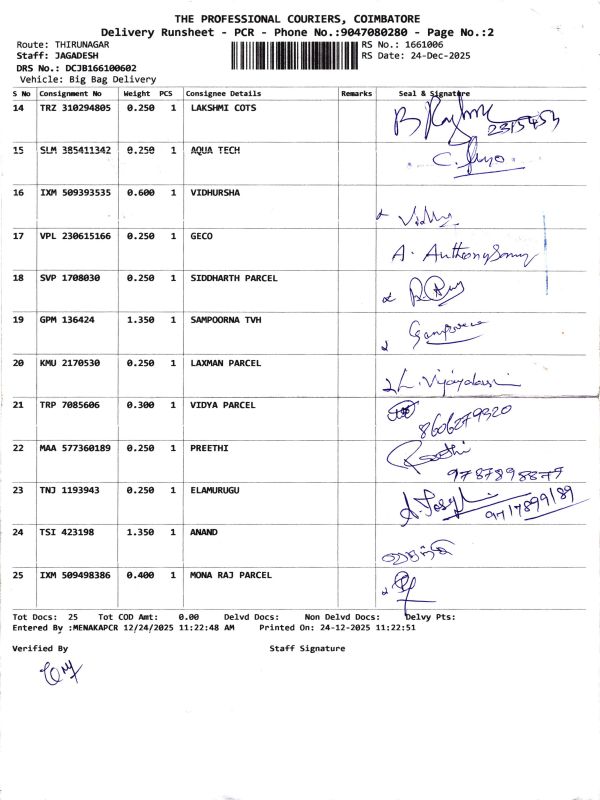 THE PROFESSIONAL COURIERS, COIMBATORE
Delivery Runsheet - PCR - Phone No.:9047080280 - Page No.:2
Route: THIRUNAGAR RS No.: 1661006
Staff: JAGADESH RS Date: 24-Dec-2025
DRS No.: DCJB166100602
Vehicle: Big Bag Delivery
S No Consignment No Weight PCS Consignee Details Remarks Seal & Signature
14 TRZ 310294805 0.250 1 LAKSHMI COTS
15 SLM 385411342 0.250 1 AQUA TECH
16 IXM 509393535 0.600 1 VIDHURSHA
17 VPL 230615166 0.250 1 GECO A. Anthony Samy
18 SVP 1708030 0.250 1 SIDDHARTH PARCEL
19 GPM 136424 1.350 1 SAMPOORNA TVH
20 KMU 2170530 0.250 1 LAXMAN PARCEL
21 TRP 7085606 0.300 1 VIDYA PARCEL
8606279320
22 MAA 577360189 0.250 1 PREETHI Preethi
23 TNJ 1193943 0.250 1 ELAMURUGU
9717899189
24 TSI 423198 1.350 1 ANAND
25 IXM 509498386 0.400 1 MONA RAJ PARCEL
Tot Docs: 25 Tot COD Amt: 0.00 Delvd Docs: Non Delvd Docs: Delvy Pts:
Entered By :MENAKAPCR 12/24/2025 11:22:48 AM Printed On: 24-12-2025 11:22:51
Verified By Staff Signature